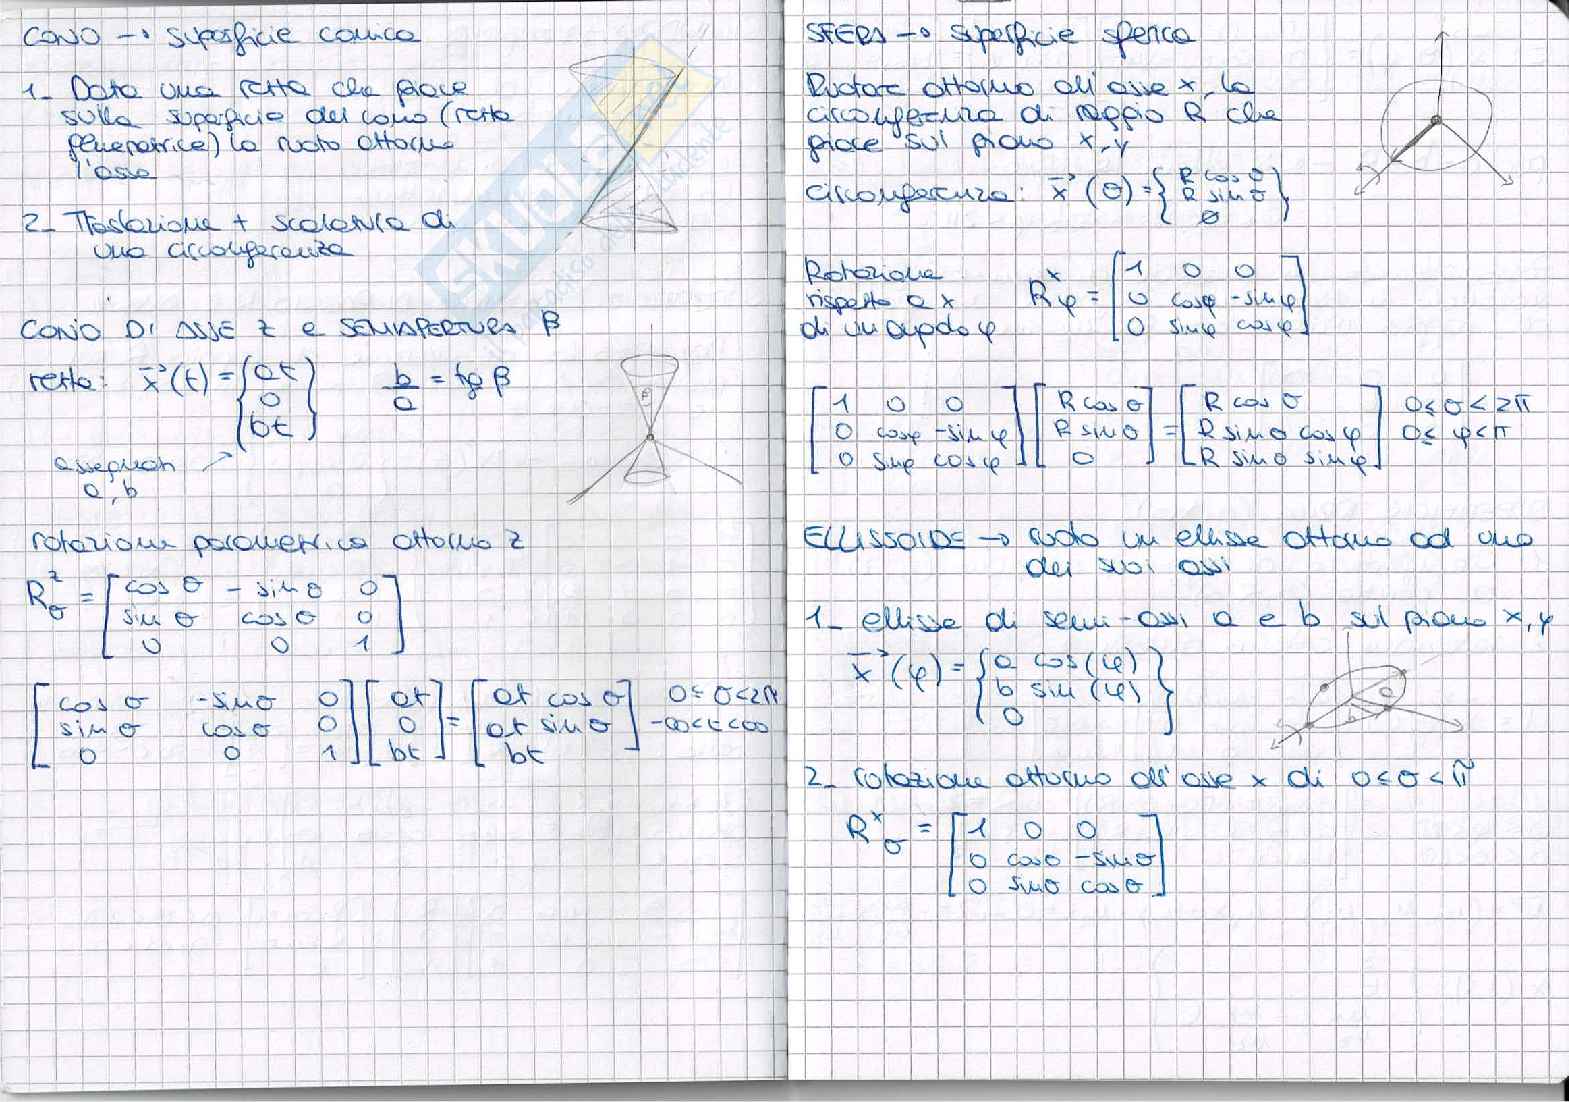 CONO → superficie conica
1- Data una retta che giace
sulla superficie del cono (retta
generatrice) la ruoto attorno
l'asse
2- Traslazione + scalatura di
una circonferenza
CONO DI ASSE Z e SEMIAPERTURA β
retta: x⃗(t) = { at
0
bt }
b/a = tg β
β
assegnati
a, b
rotazione parametrica attorno z
R^z_θ = [ cos θ - sin θ 0
sin θ cos θ 0
0 0 1 ]
[ cos θ -sin θ 0 ] [ at ] = [ at cos θ ] 0 ≤ θ < 2π
[ sin θ cos θ 0 ] [ 0 ] = [ at sin θ ] -∞ < t < ∞
[ 0 0 1 ] [ bt ] [ bt ]
SFERA → superficie sferica
Ruotare attorno all'asse x, la
circonferenza di raggio R che
giace sul piano x,y
circonferenza: x⃗(θ) = { R cos θ
R sin θ
0 }
Rotazione
rispetto a x
di un angolo φ
R^x_φ = [ 1 0 0
0 cosφ -sinφ
0 sinφ cosφ ]
[ 1 0 0 ] [ R cos θ ] = [ R cos θ ] 0 ≤ θ < 2π
[ 0 cosφ -sinφ ] [ R sin θ ] = [ R sin θ cos φ ] 0 ≤ φ < π
[ 0 sinφ cosφ ] [ 0 ] [ R sin θ sin φ ]
ELLISSOIDE → ruoto un ellisse attorno ad uno
dei suoi assi
1- ellisse di semi-assi a e b sul piano x,y
x⃗(φ) = { a cos(φ)
b sin(φ)
0 }
a
b
2- rotazione attorno all'asse x di 0 ≤ θ < π
R^x_θ = [ 1 0 0
0 cosθ -sinθ
0 sinθ cosθ ]